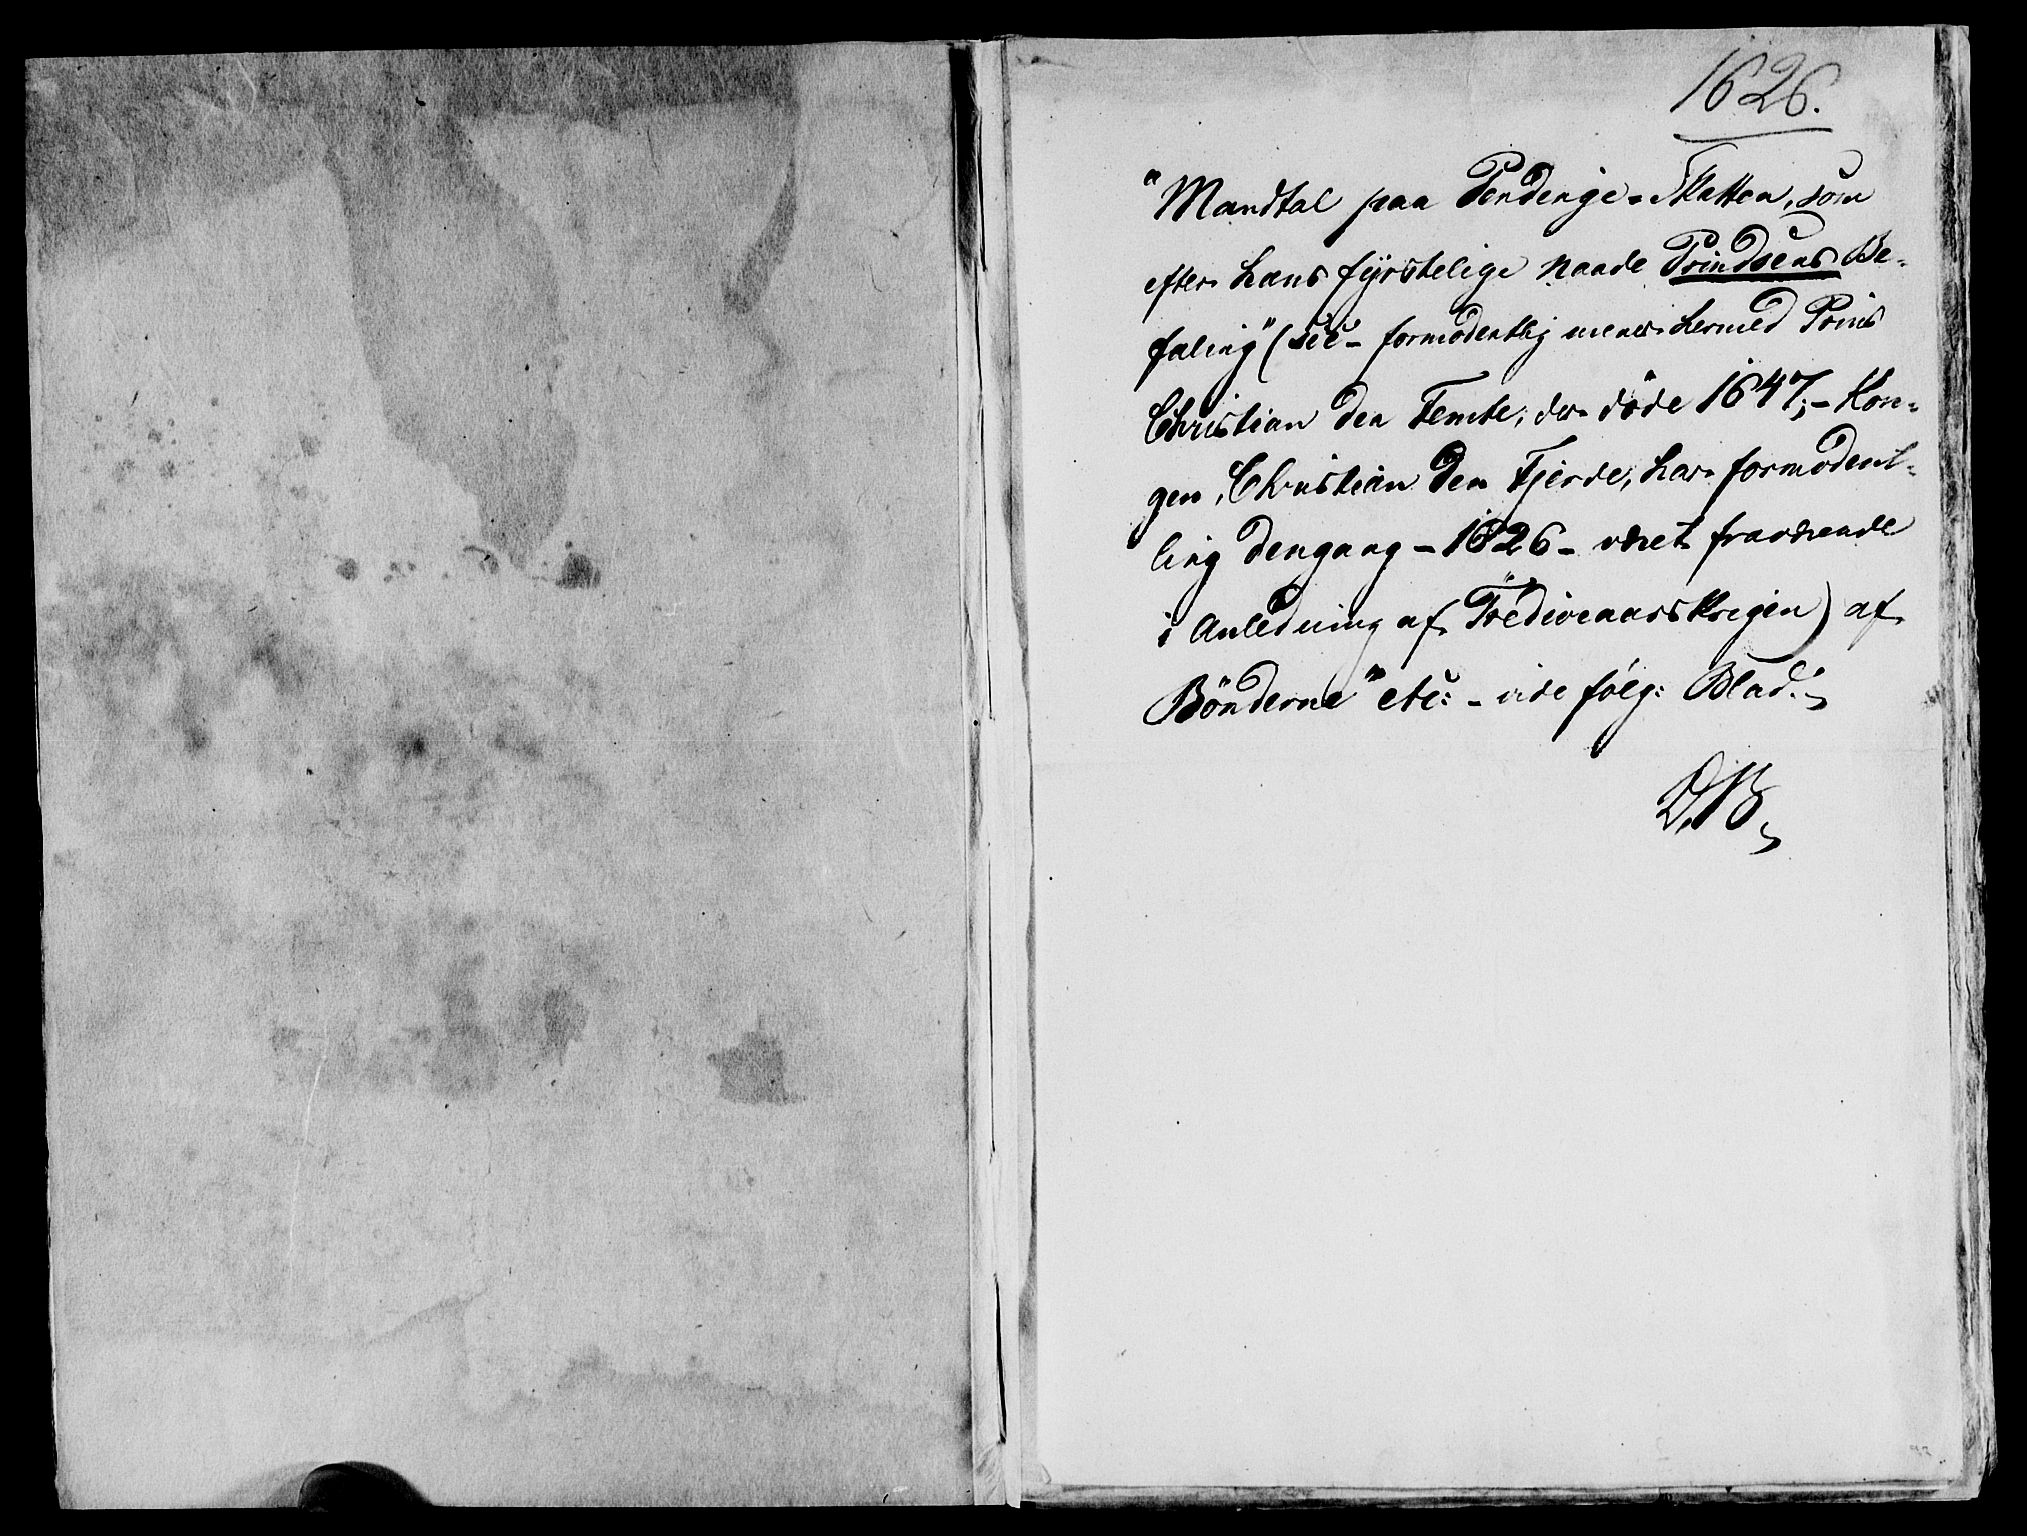 1626.
"Mandtal paa Pendenge-Skatten, som
efter hans fyrstelige Naade Prindsens Be-
faling" (sic - formodentlig menes hermed Prins
Christian den Femte, der døde 1647; - Kon-
gen, Christian den Fjerde, har formodent-
lig dengang - 1626 - været fraværende
i Anledning af Trediveaarskrigen) af
Bönderne" etc: - vide følg: Blad.